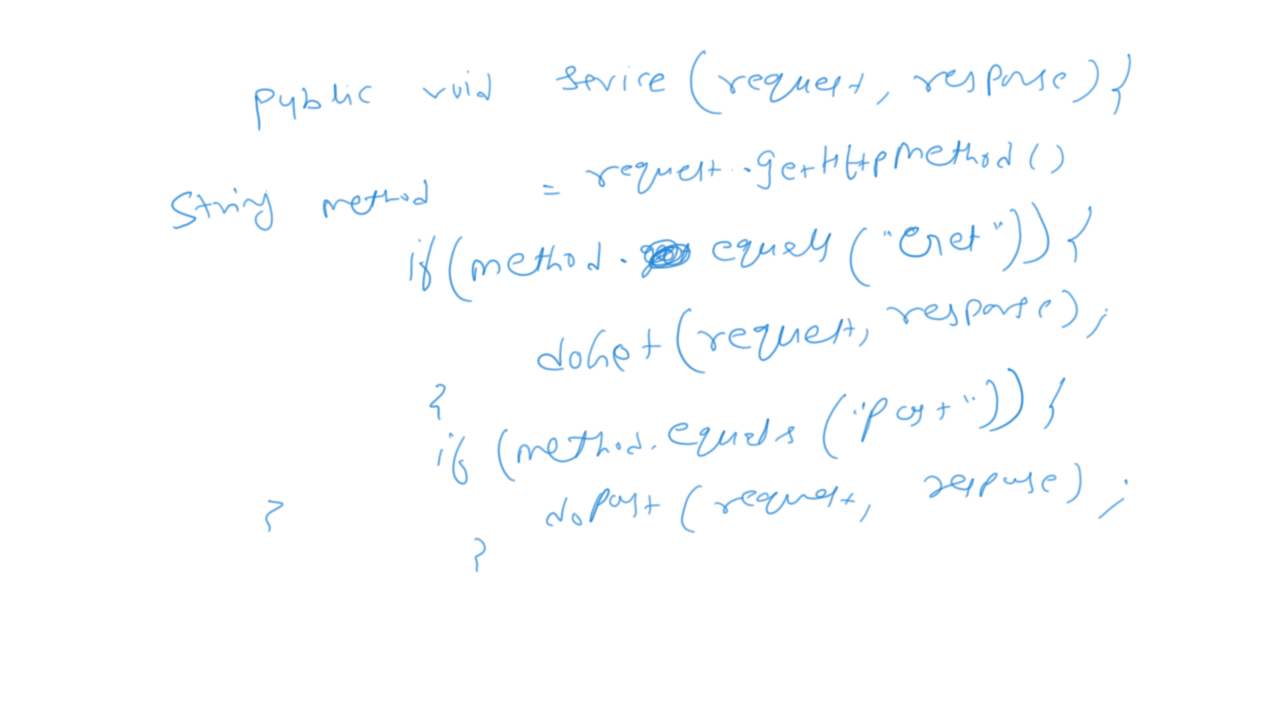 public void service (request, response) {
String method = request.getHttpMethod()
if (method. equals ("Get")) {
doGet (request, response);
}
if (method.equals ("Post")) {
doPost (request, response);
}
}